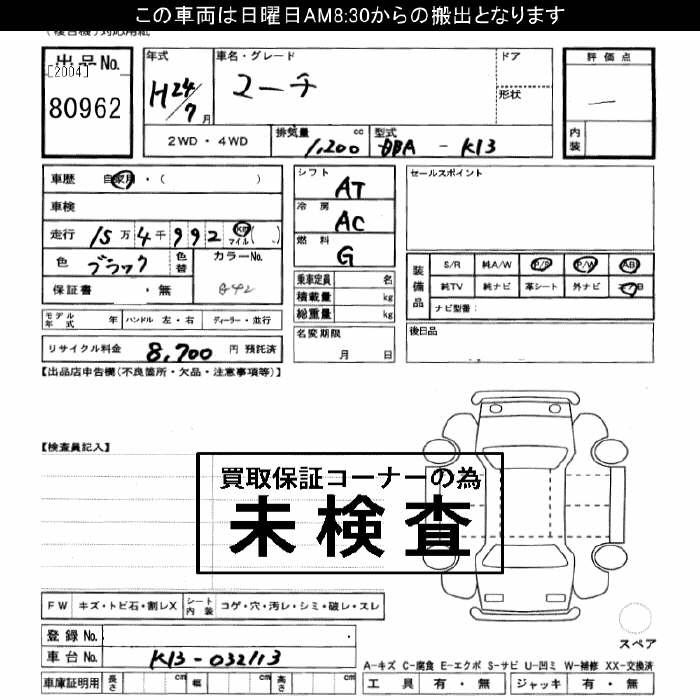 この車両は日曜日AM8:30からの搬出となります
出品No.
[2004]
80962
年式
H24/7月
車名・グレード
マーチ
ドア
形状
評価点
—
内装
2WD・4WD
排気量 cc
1,200
型式
DBA - K13
車歴 自家用・( )
車検
走行 15万4千992 km マイル( )
色 ブラック 色替
カラーNo.
保証書 ・無
シフト
AT
冷房
AC
燃料
G
乗車定員 名
積載量 kg
総重量 kg
セールスポイント
装備品
S/R 純A/W P/S P/W AB
純TV 純ナビ 革シート 外ナビ
ナビ型番:
モデル年式 年 ハンドル 左・右 ディーラー・並行
リサイクル料金 8,700 円 預託済
名変期限
月 日
後日品
【出品店申告欄(不良箇所・欠品・注意事項等)】
【検査員記入】
買取保証コーナーの為
未検査
FW キズ・トビ石・割レX シート内装 コゲ・穴・汚レ・シミ・破レ・スレ
登録No.
車台No. K13-032113
車庫証明用 長さ cm 幅 cm 高さ cm
スペア
A-キズ C-腐食 E-エクボ S-サビ U-凹ミ W-補修 XX-交換済
工具 有・無 ジャッキ 有・無